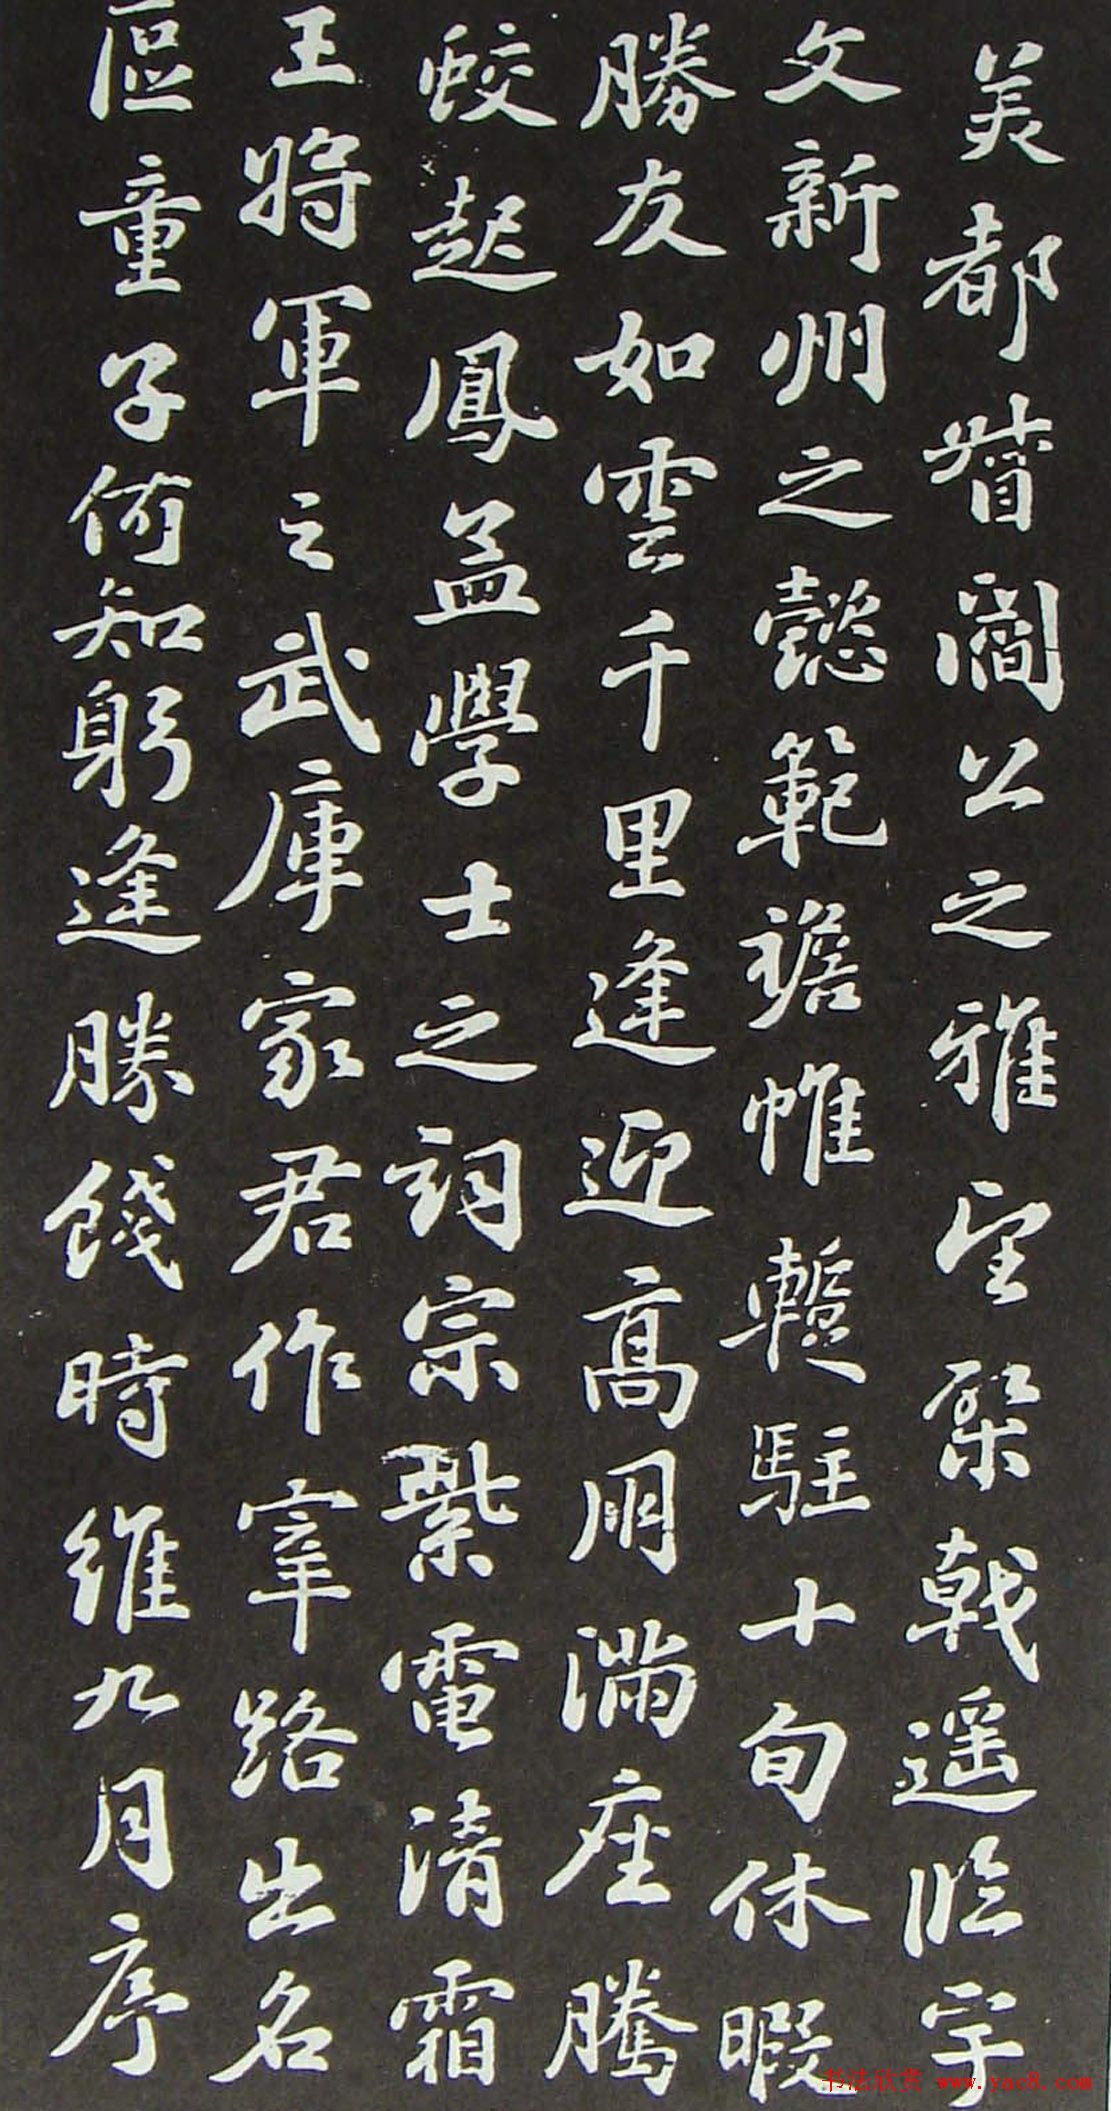 美都督閻公之雅望棨戟遥臨宇
文新州之懿範襜帷暫駐十旬休暇
勝友如雲千里逢迎高朋滿座騰
蛟起鳳孟學士之詞宗紫電清霜
王將軍之武庫家君作宰路出名
區童子何知躬逢勝餞時維九月序
书法欣赏 www.yac8.com